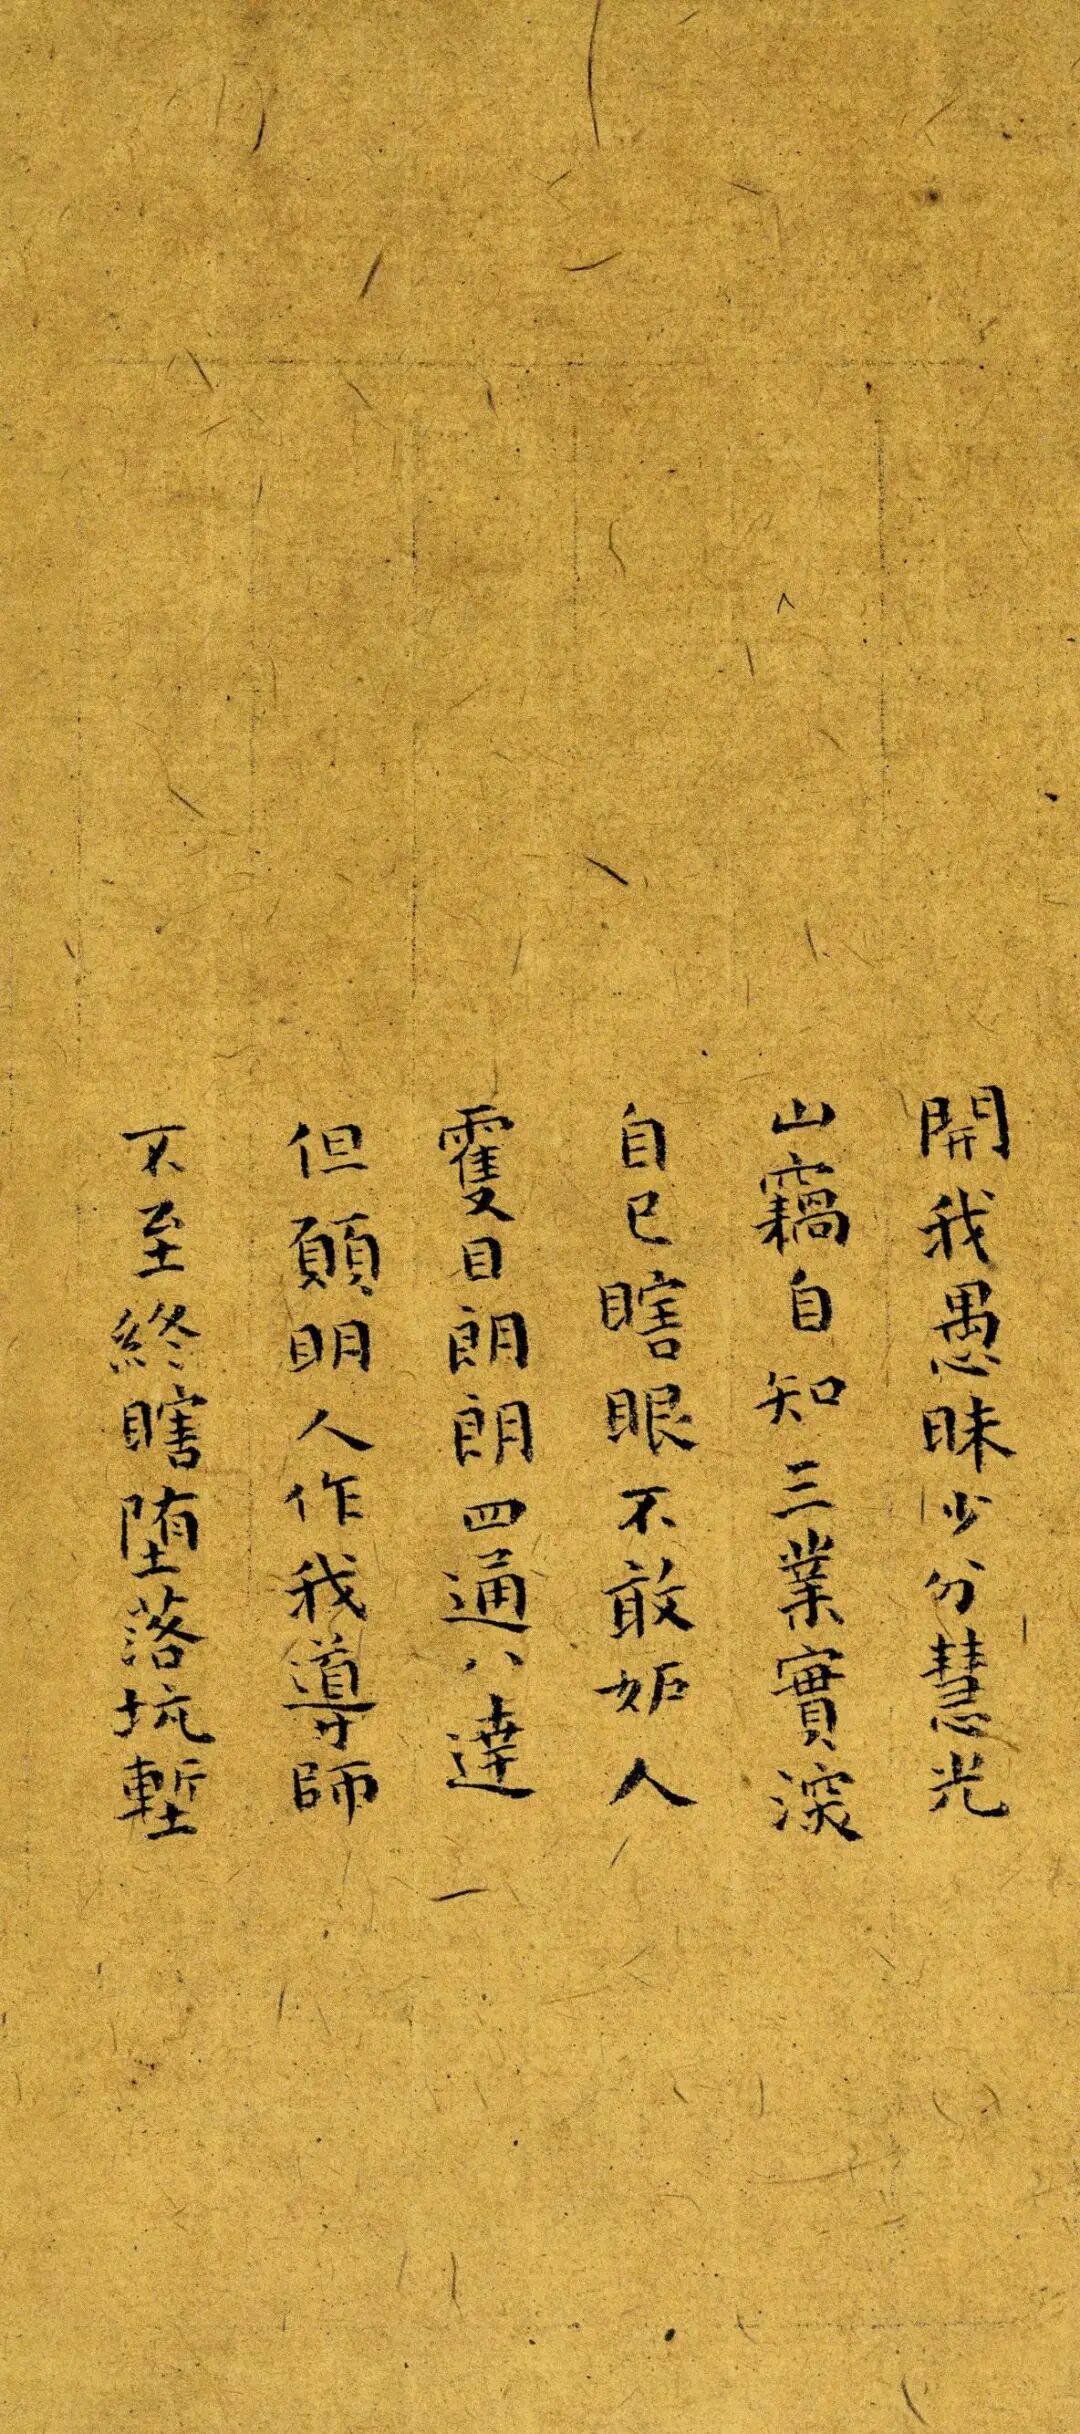 開我愚昧少分慧光
山竊自知三業實深
自己瞎眼不敢妬人
雙目朗朗四通八達
但願明人作我導師
不至終瞎墮落坑塹